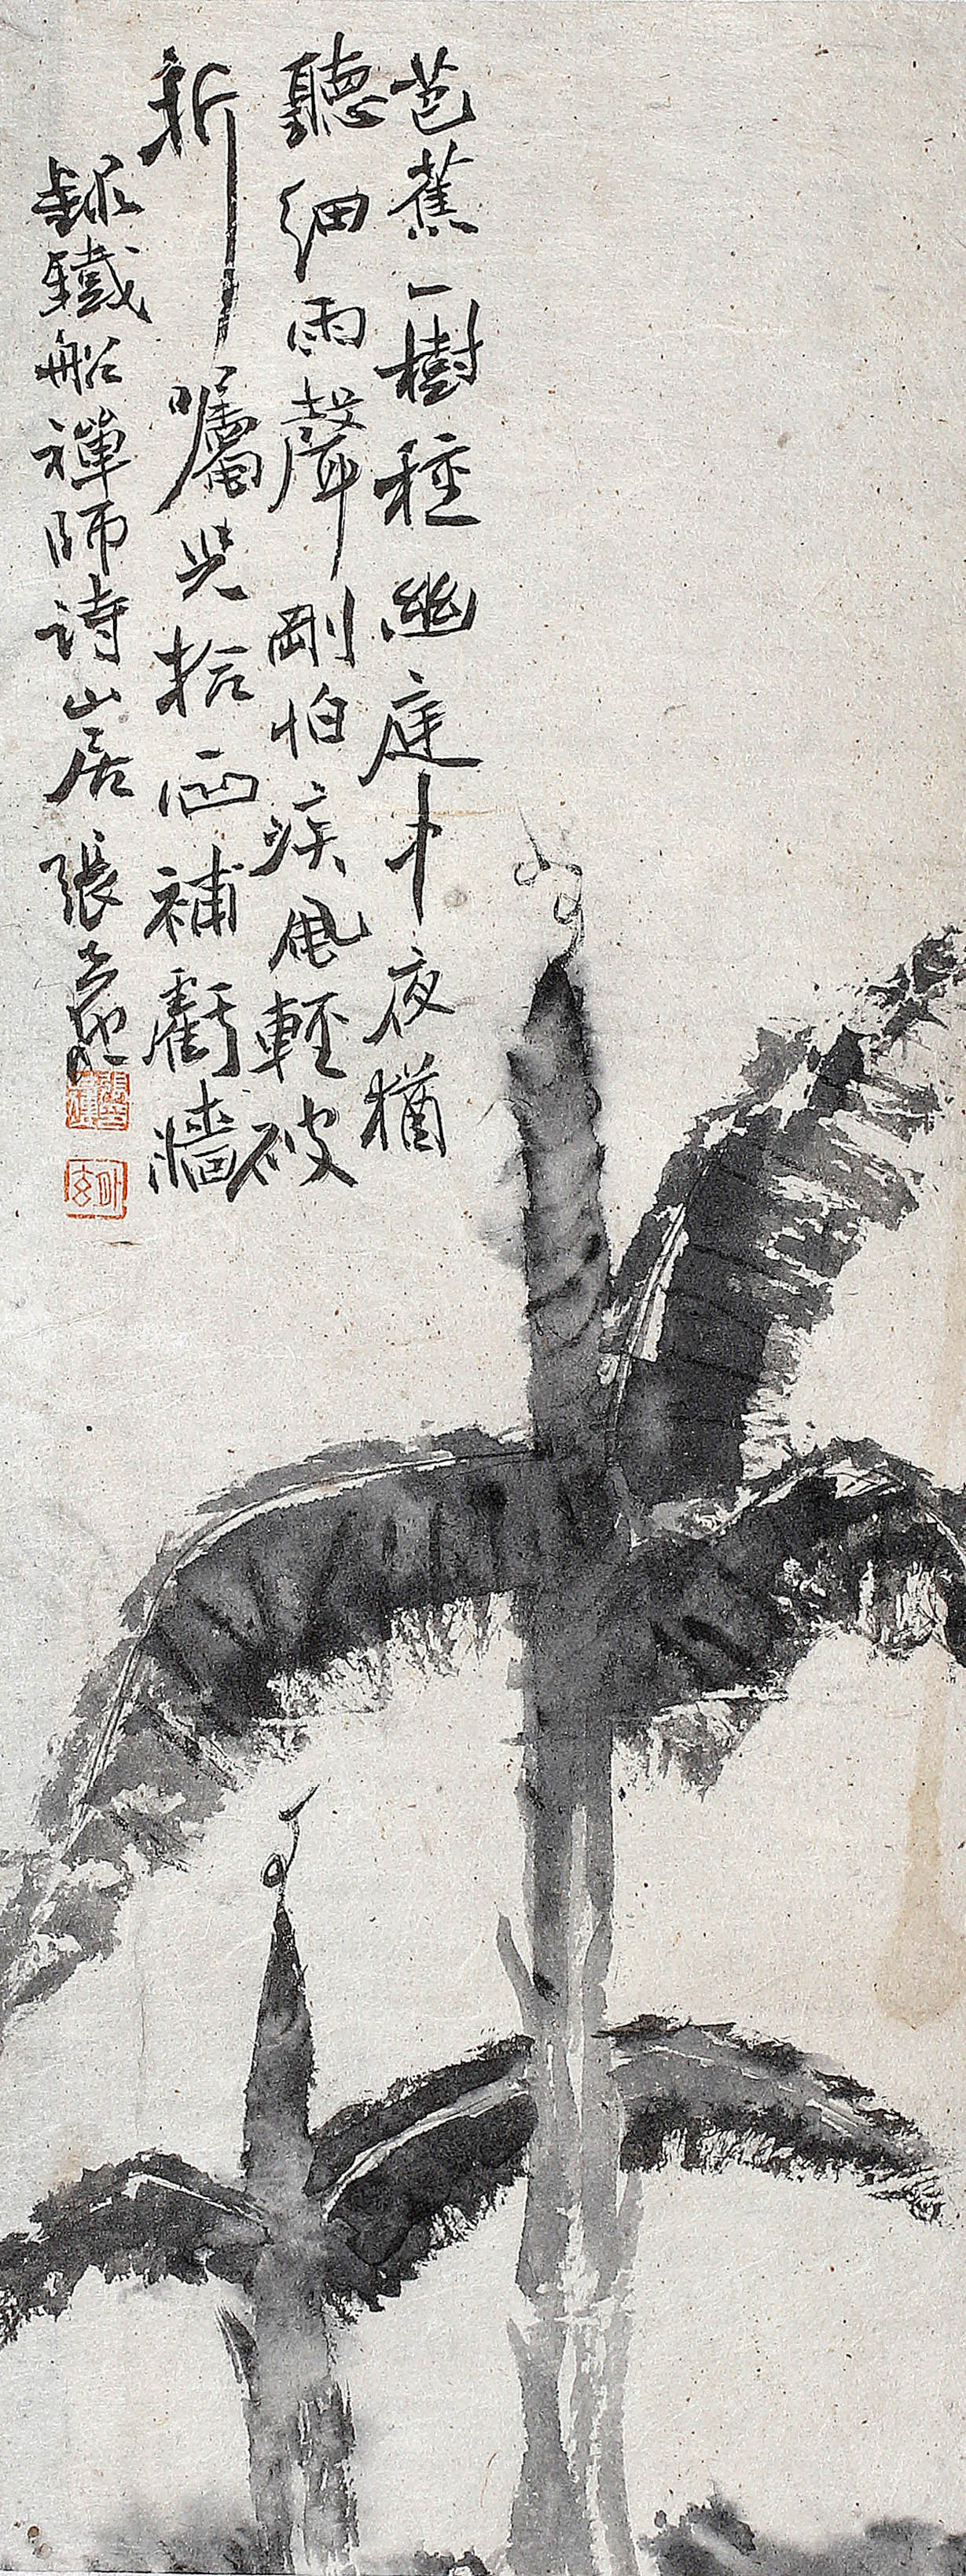 芭蕉一樹種幽庭中夜猶
聽細雨聲剛怕疾風輕破
新囑兒拾石補虧牆
錄鐵船禪師詩山居張